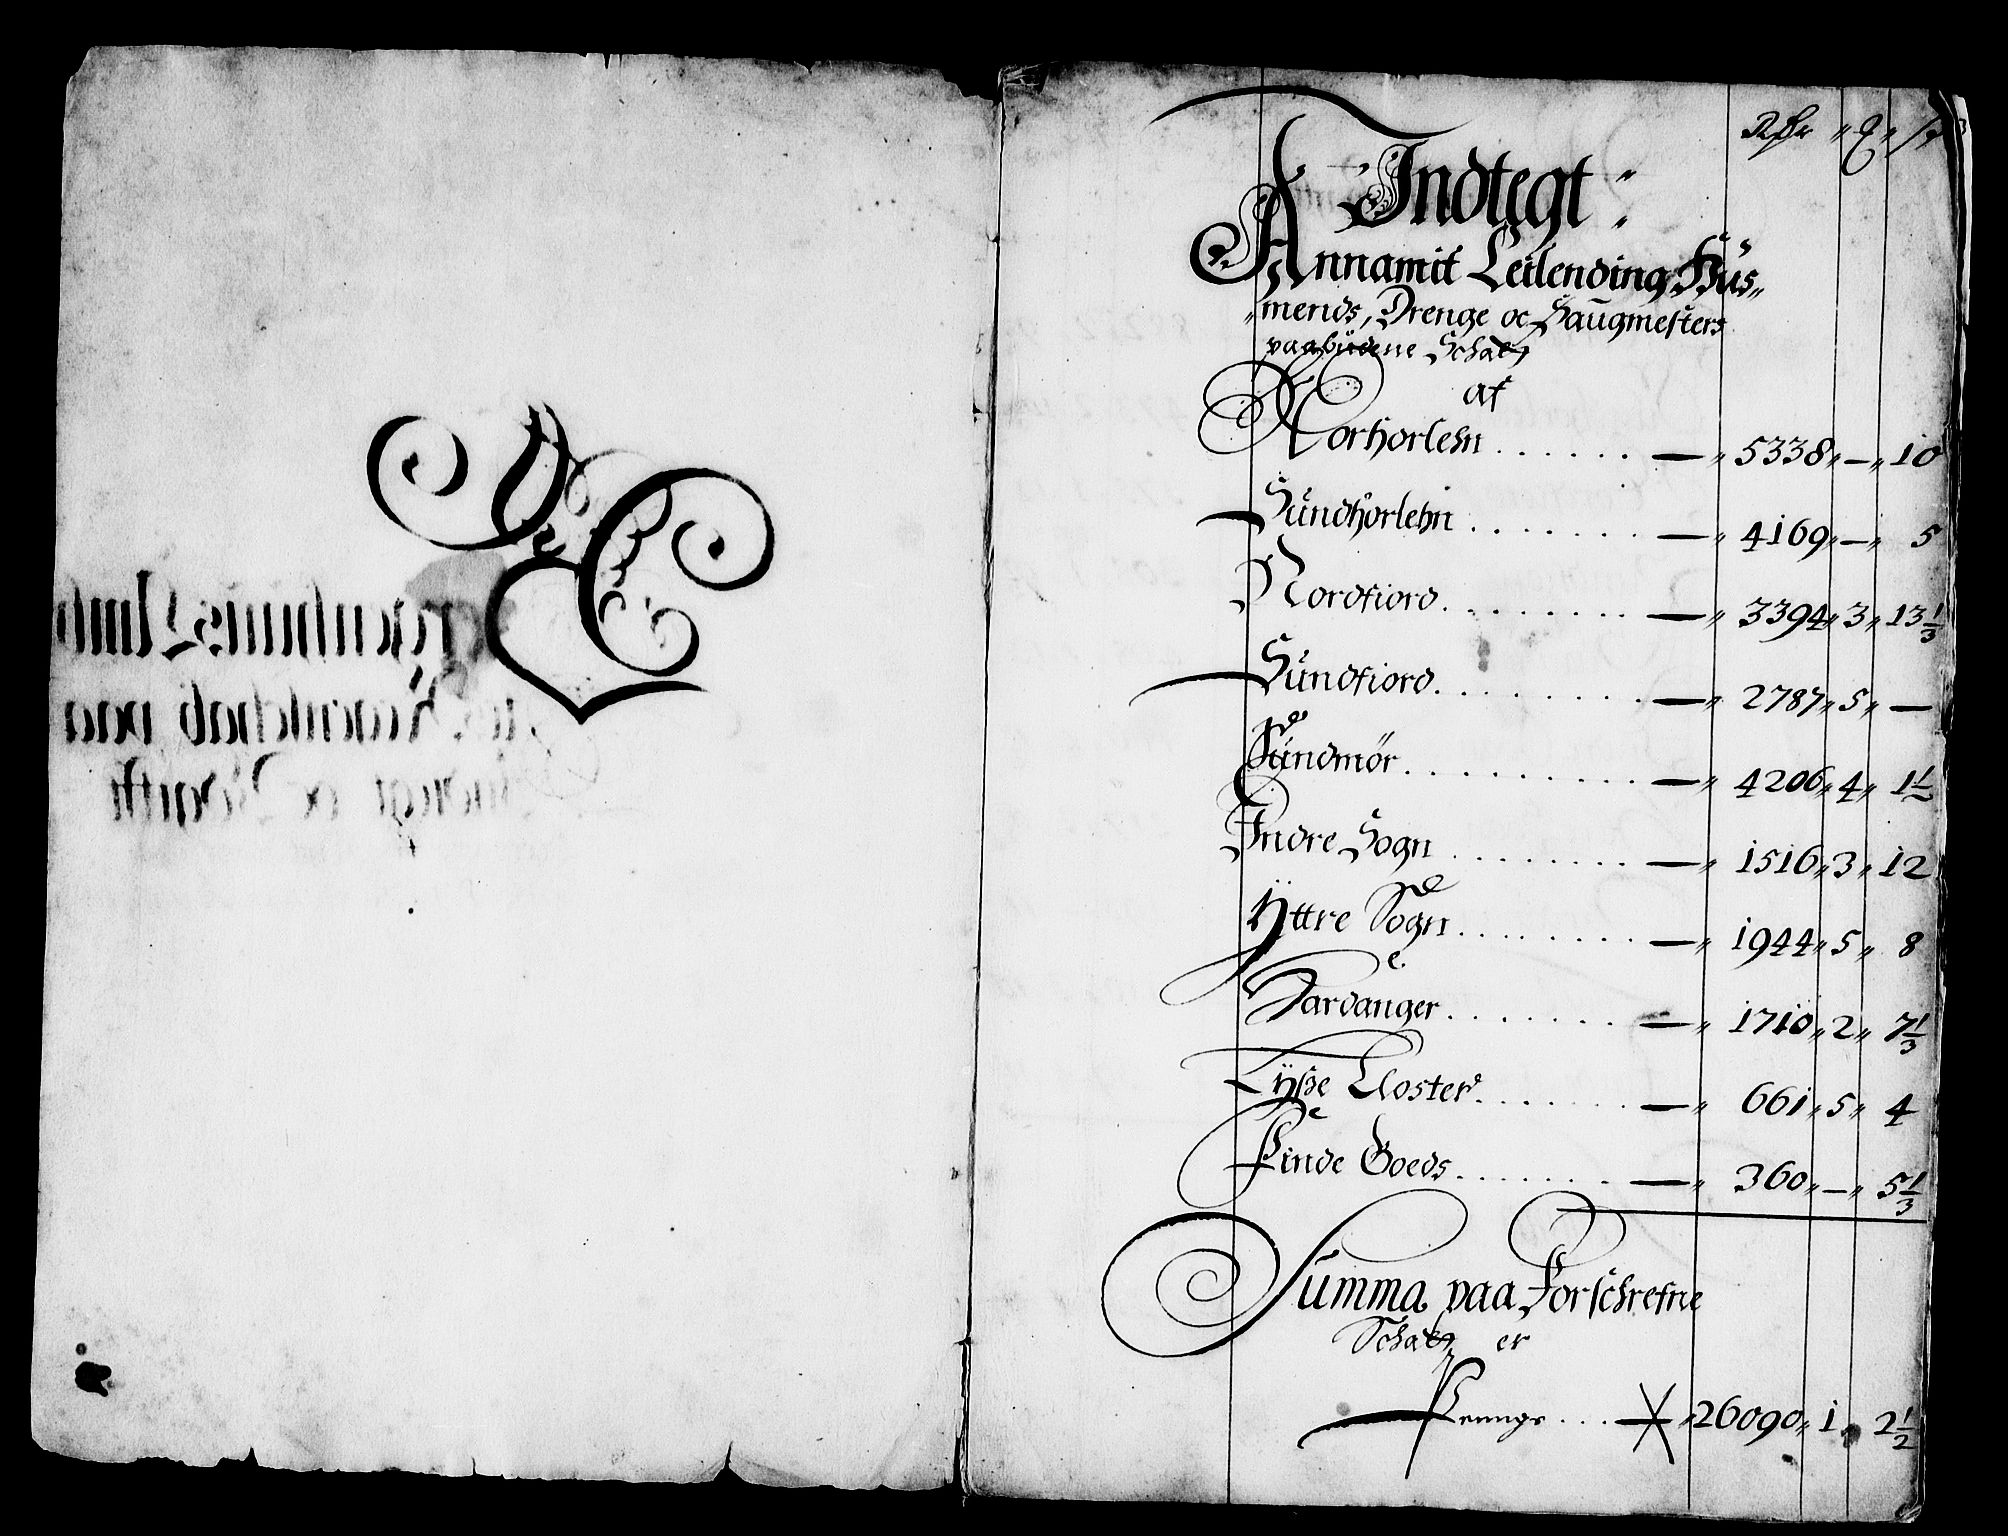 Rdr " ₰ " ß
Indtegt:
Annamit Leilending, Hüs„
„mends, Drenge oc Saugmesters
paabüdene Schatt
af
Norhorlehn . . . . . . — „ 5338 „ — „ 10
Sündhorlehn . . . . . . . — „ 4169 „ — „ 5
Nordfiord . . . . . . . — „ 3394 „ 3 „ 13 1/3
Sündfiord . . . . . . . — „ 2787 „ 5 „ —
Sündmör . . . . . . . . — „ 4206 „ 4 „ 1 1/2
Indre Sogn . . . . . . . . — „ 1516 „ 3 „ 12
Yttre Sogn . . . . . . . . — „ 1944 „ 5 „ 8
Hardanger . . . . . . . — „ 1710 „ 2 „ 7 1/3
Lÿsse Closter . . . . . . . — „ 661 „ 5 „ 4
Finde Goeds . . . . . . . — „ 360 „ — „ 5 1/3
Summa paa Forschrefne
Schatt er
Penninge . . . — „ 26090 „ 1 „ 2 1/2